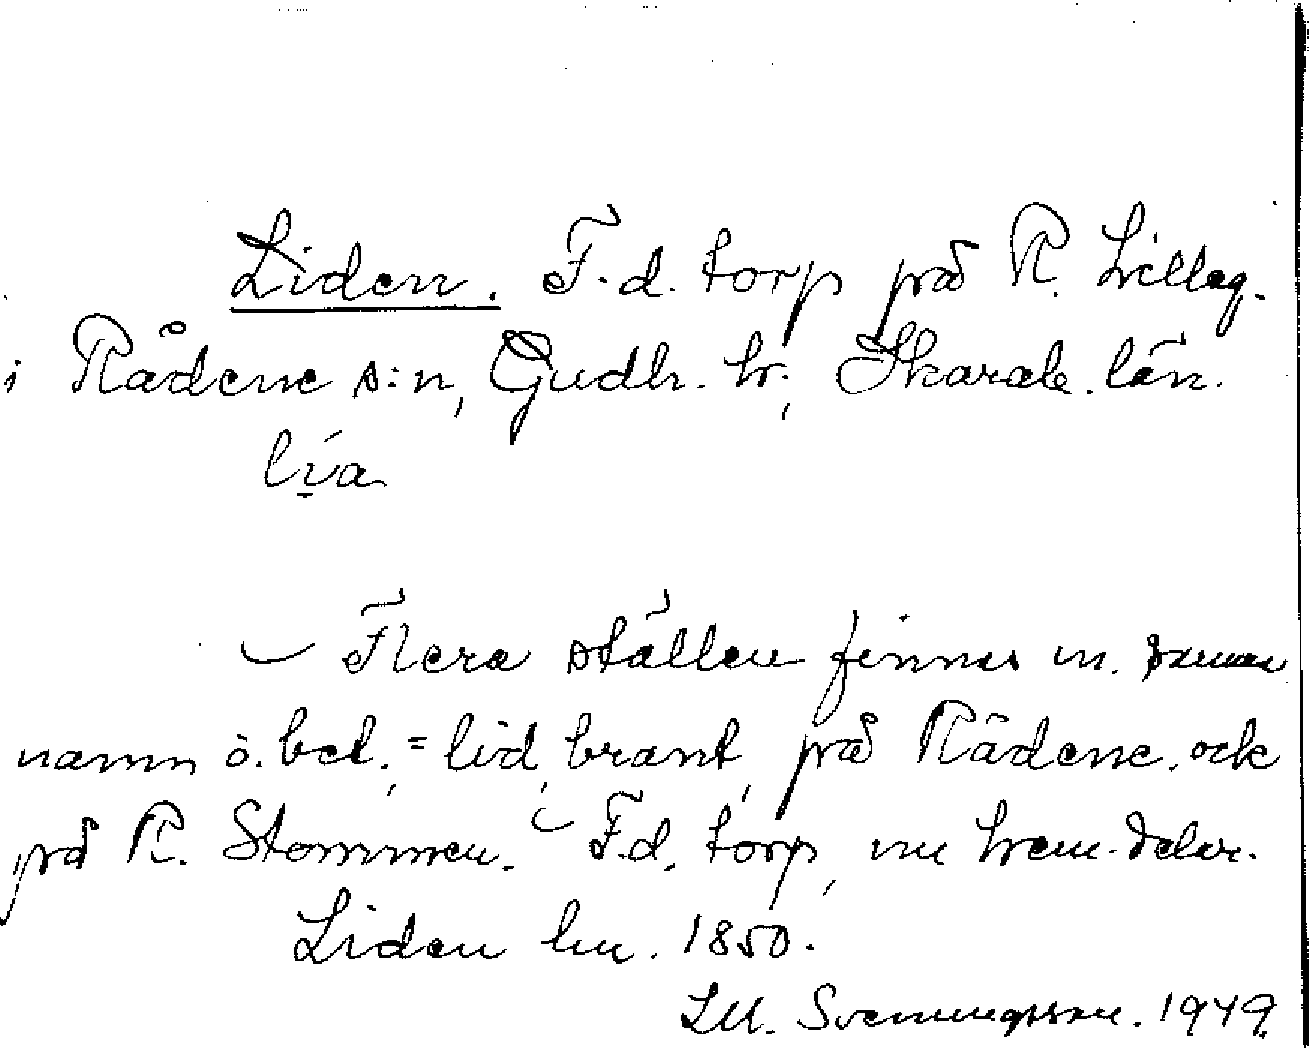 Liden. F.d. torp på R. Lilleg.
i Rådene s:n, Gudh. hr; Skarab. län.
lía
– Flera ställen finnes m. samma
namn o. bet. = lid, brant, på Rådene. och
på R. Stommen. – F.d. torp, nu hem.delar.
Liden hu. 1850.
LM. Svenungsson. 1949.